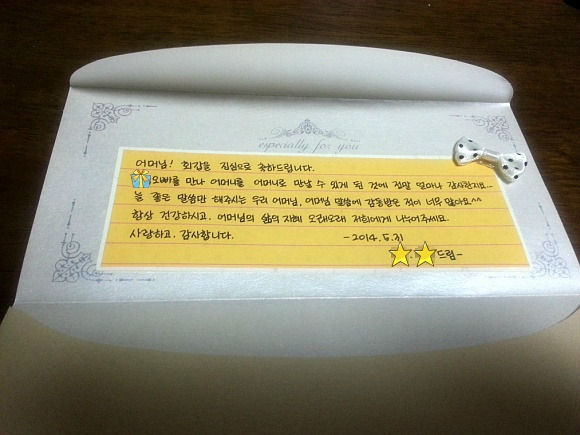 especially for you
어머님! 회갑을 진심으로 축하드립니다.
오빠를 만나 어머니를 어머니로 만날 수 있게 된 것에 정말 얼마나 감사한지요...
늘 좋은 말씀만 해주시는 우리 어머님, 어머님 말씀에 감동받은 적이 너무 많아요^^
항상 건강하시고, 어머님의 삶의 지혜 오래오래 저희에게 나누어주세요.
사랑하고, 감사합니다. -2014.5.31
드림-